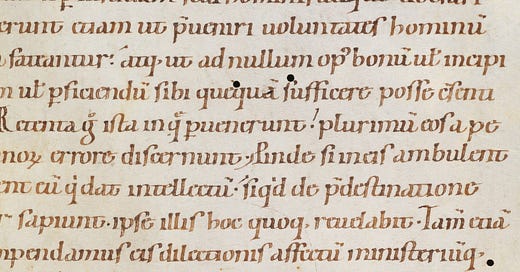 erunt etiam ut p̄ueniri uoluntates hominū
fateantur: atq; ut ad nullum op᷒ bonū ul̄ incipi
ul̄ ꝑficiendū sibi quēquā sufficere posse
Retenta g̊ ista in q̨ peruenerunt: plurimū eos a pe
noꝝ errore discernunt. Proinde si in eis ambulent
ent eū q̇ dat intellectū: siq̇d de p̄destinatione
sapiunt. ipse illis hoc quoq; reuelabit. Tam̄ etiā
npendamus eis dilectionis affectū ministeriūq;